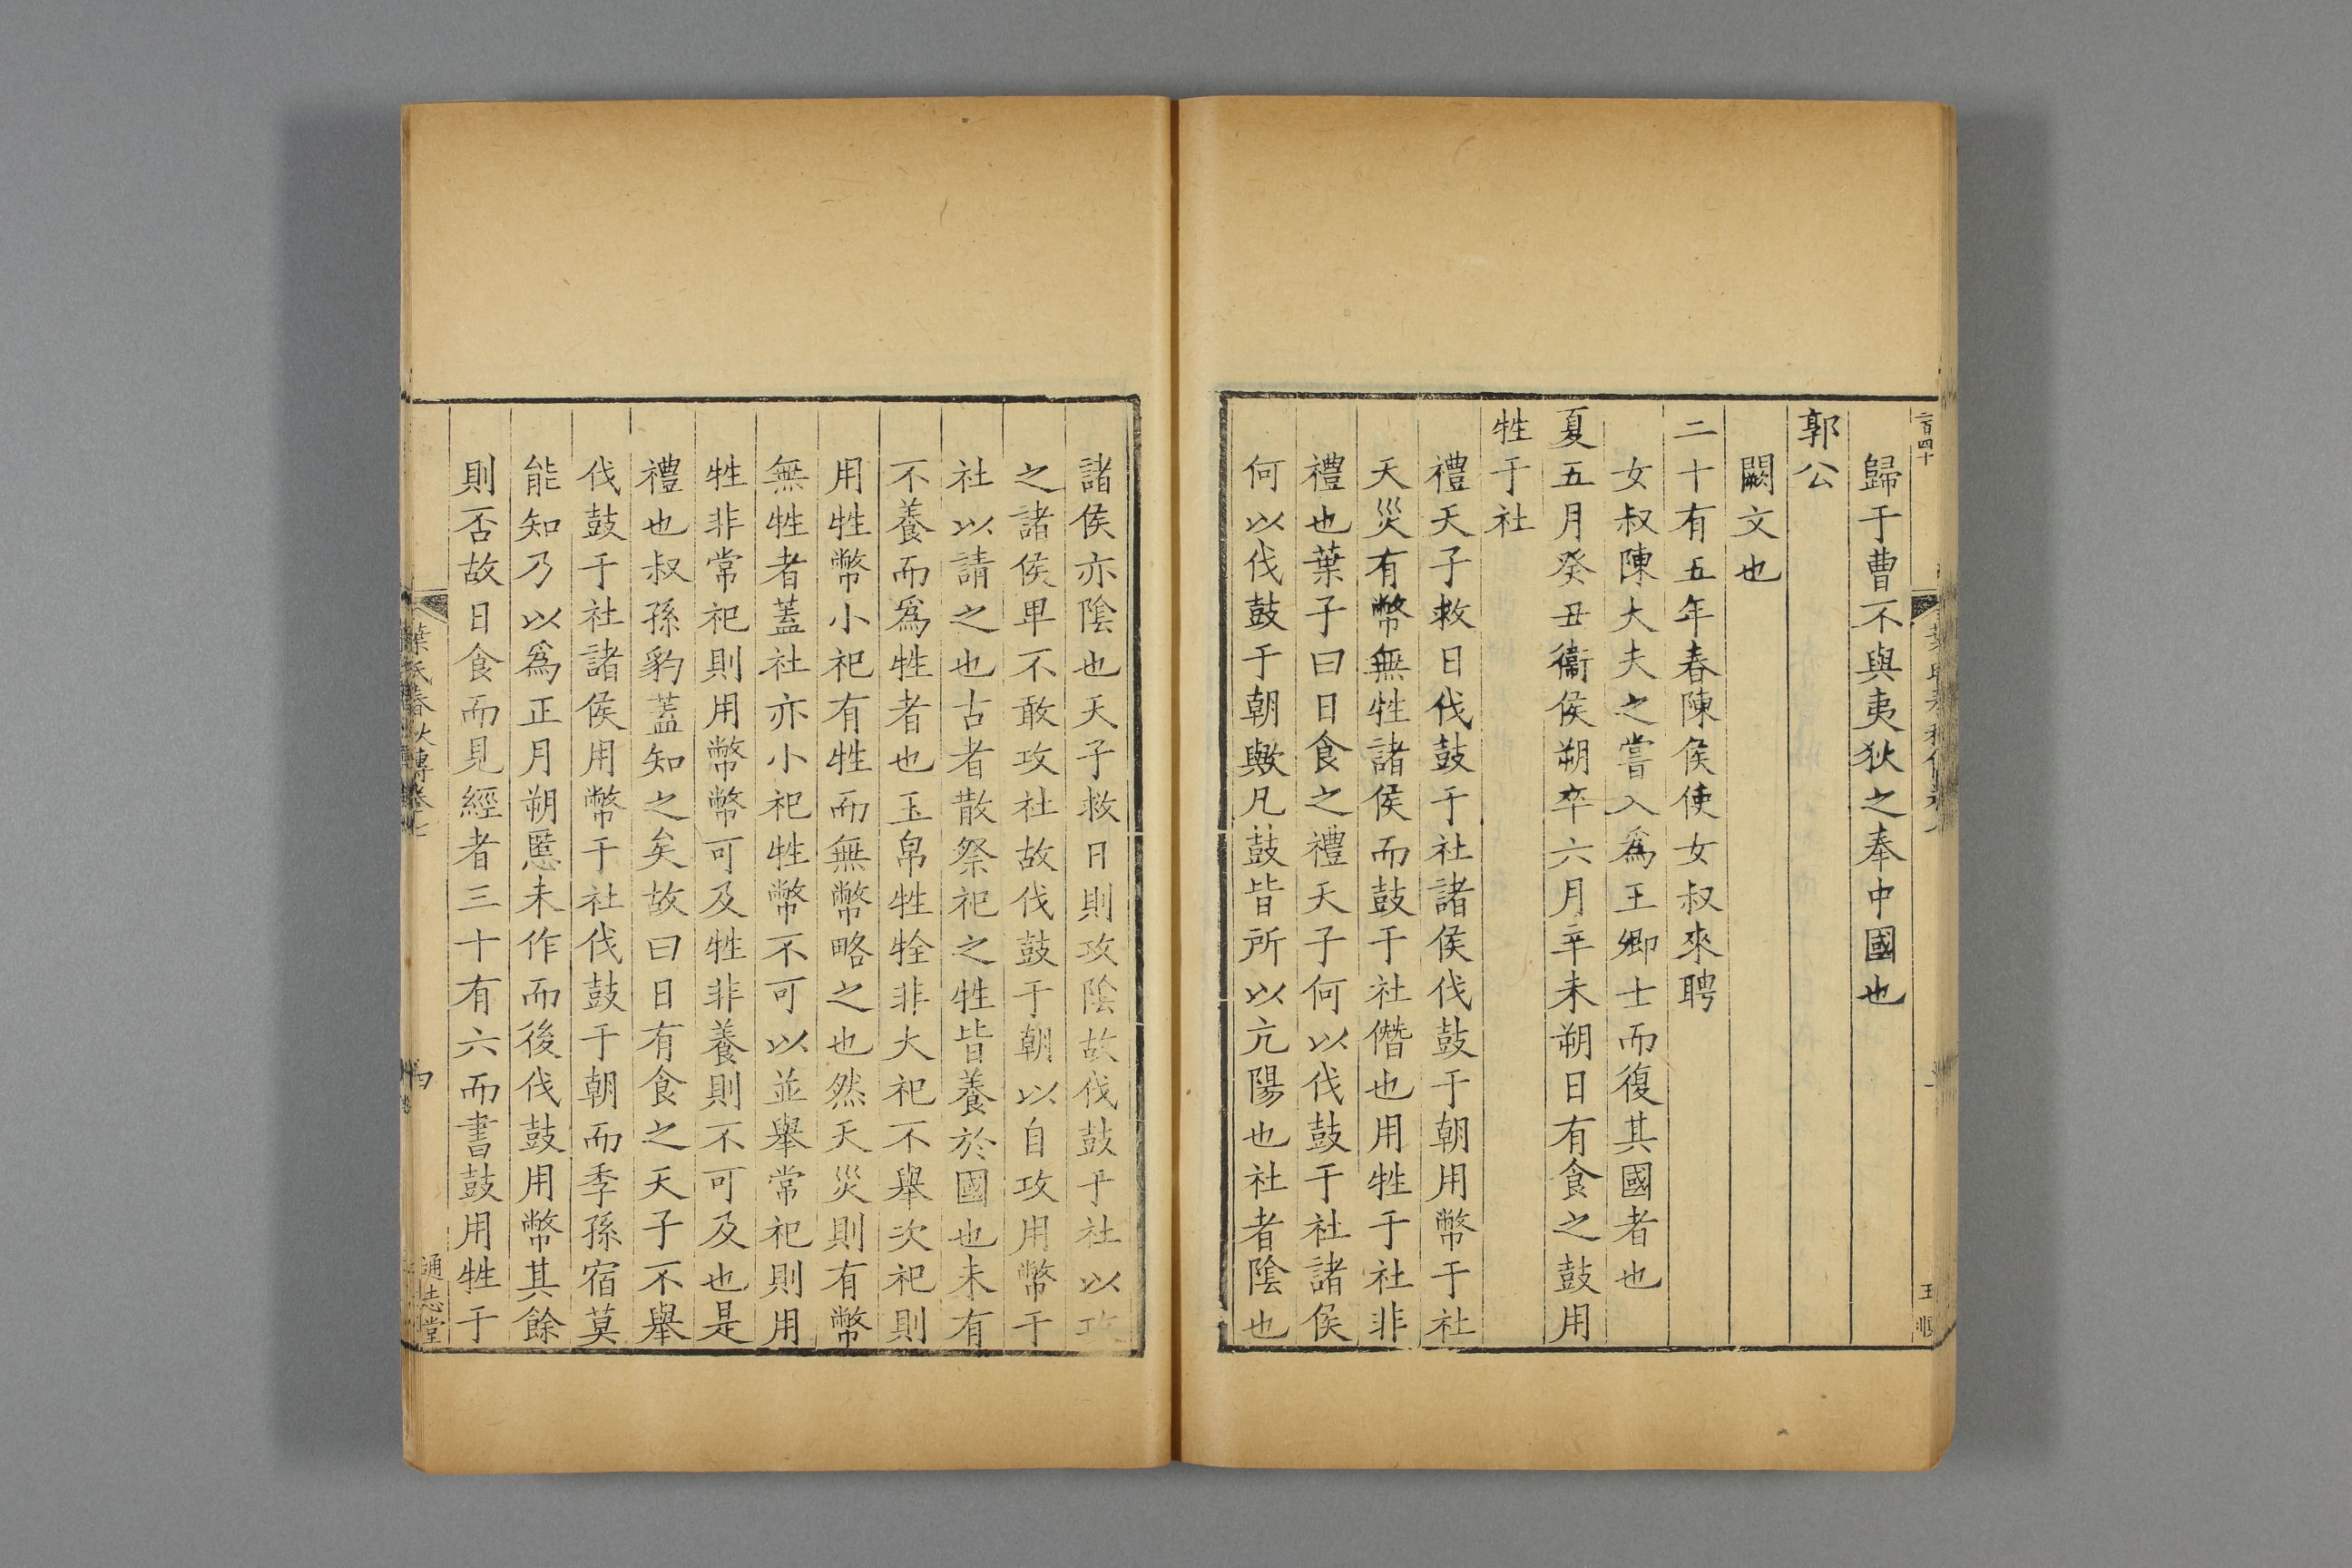 二百四十
歸于曹不與夷狄之奉中國也
郭公
闕文也
二十有五年春陳侯使女叔來聘
女叔陳大夫之嘗入爲王卿士而復其國者也
夏五月癸丑衞侯朔卒六月辛未朔日有食之鼓用
牲于社
禮天子救日伐鼓于社諸侯伐鼓于朝用幣于社
天災有幣無牲諸侯而鼓于社僭也用牲于社非
禮也葉子曰日食之禮天子何以伐鼓于社諸侯
何以伐鼓于朝歟凡鼓皆所以亢陽也社者陰也
諸侯亦陰也天子救日則攻陰故伐鼓于社以攻
之諸侯卑不敢攻社故伐鼓于朝以自攻用幣于
社以請之也古者散祭祀之牲皆養於國也未有
不養而爲牲者也玉帛牲牷非大祀不舉次祀則
用牲幣小祀有牲而無幣略之也然天災則有幣
無牲者蓋社亦小祀牲幣不可以並舉常祀則用
牲非常祀則用幣幣可及牲非養則不可及也是
禮也叔孫豹蓋知之矣故曰日有食之天子不舉
伐鼓于社諸侯用幣于社伐鼓于朝而季孫宿莫
能知乃以爲正月朔慝未作而後伐鼓用幣其餘
則否故日食而見經者三十有六而書鼓用牲于
葉氏春秋傳卷七
四
通志堂